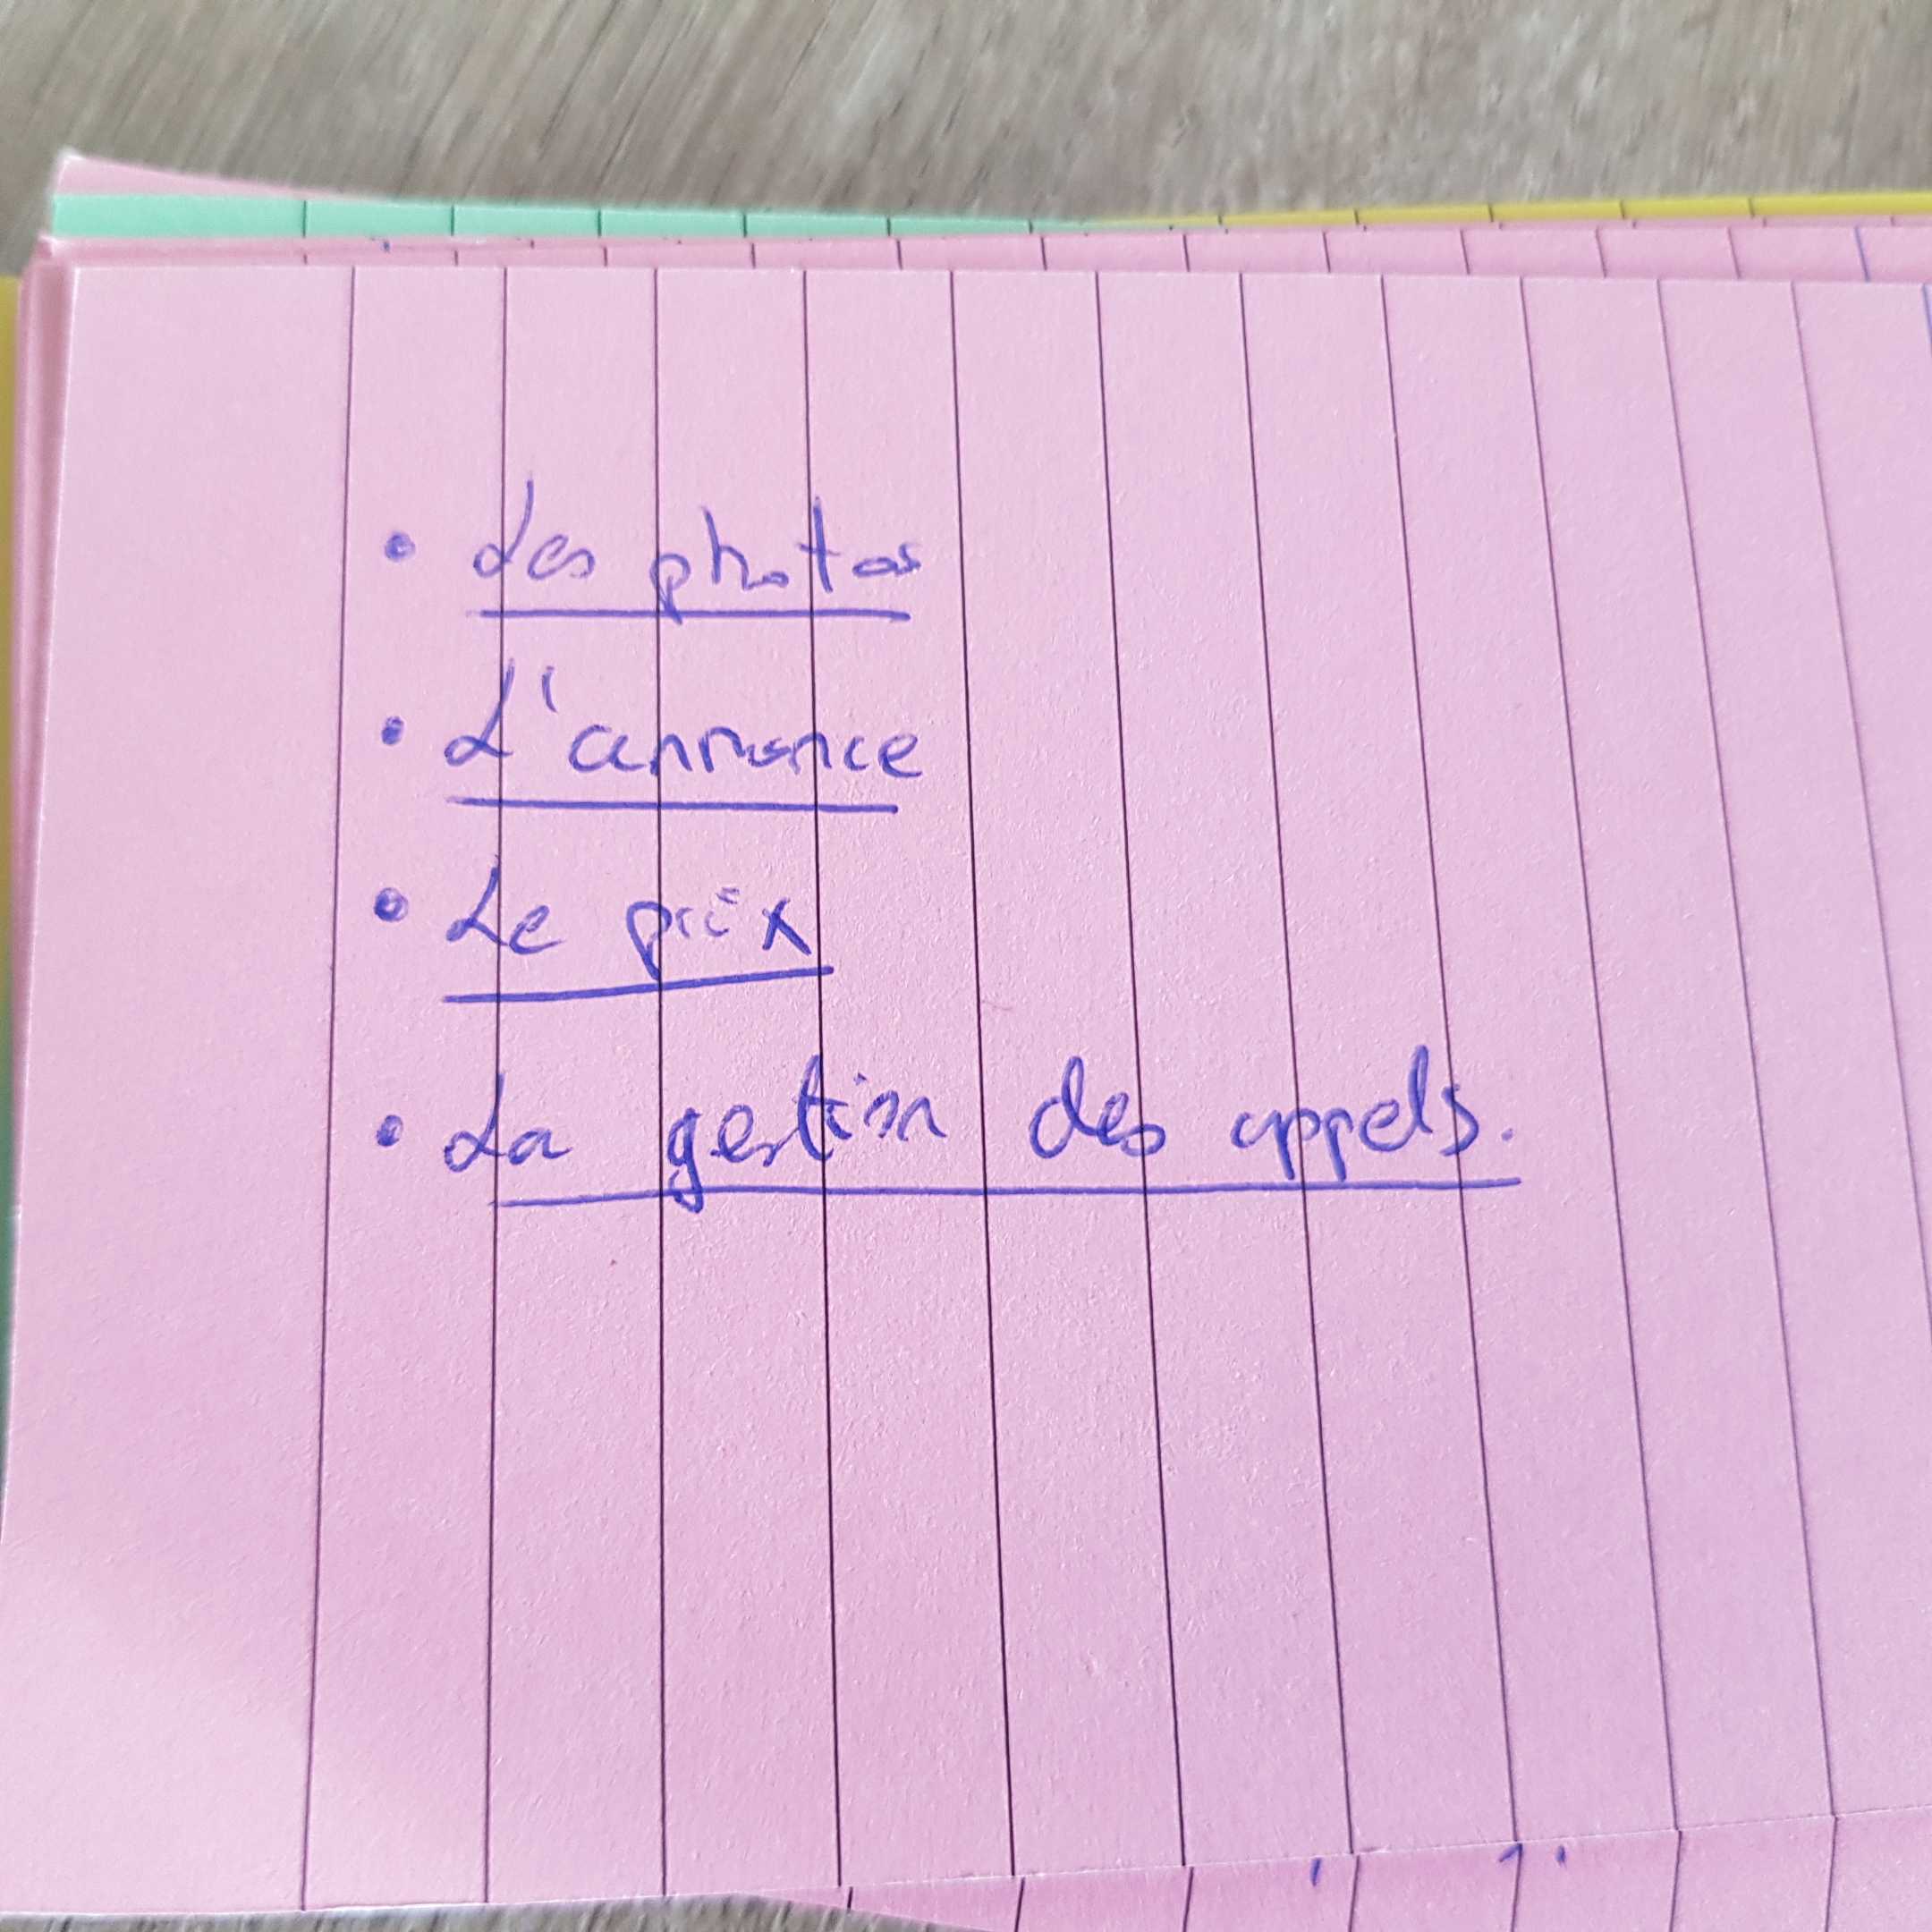 • Les photos
• L'annonce
• Le prix
• La gestion des appels.